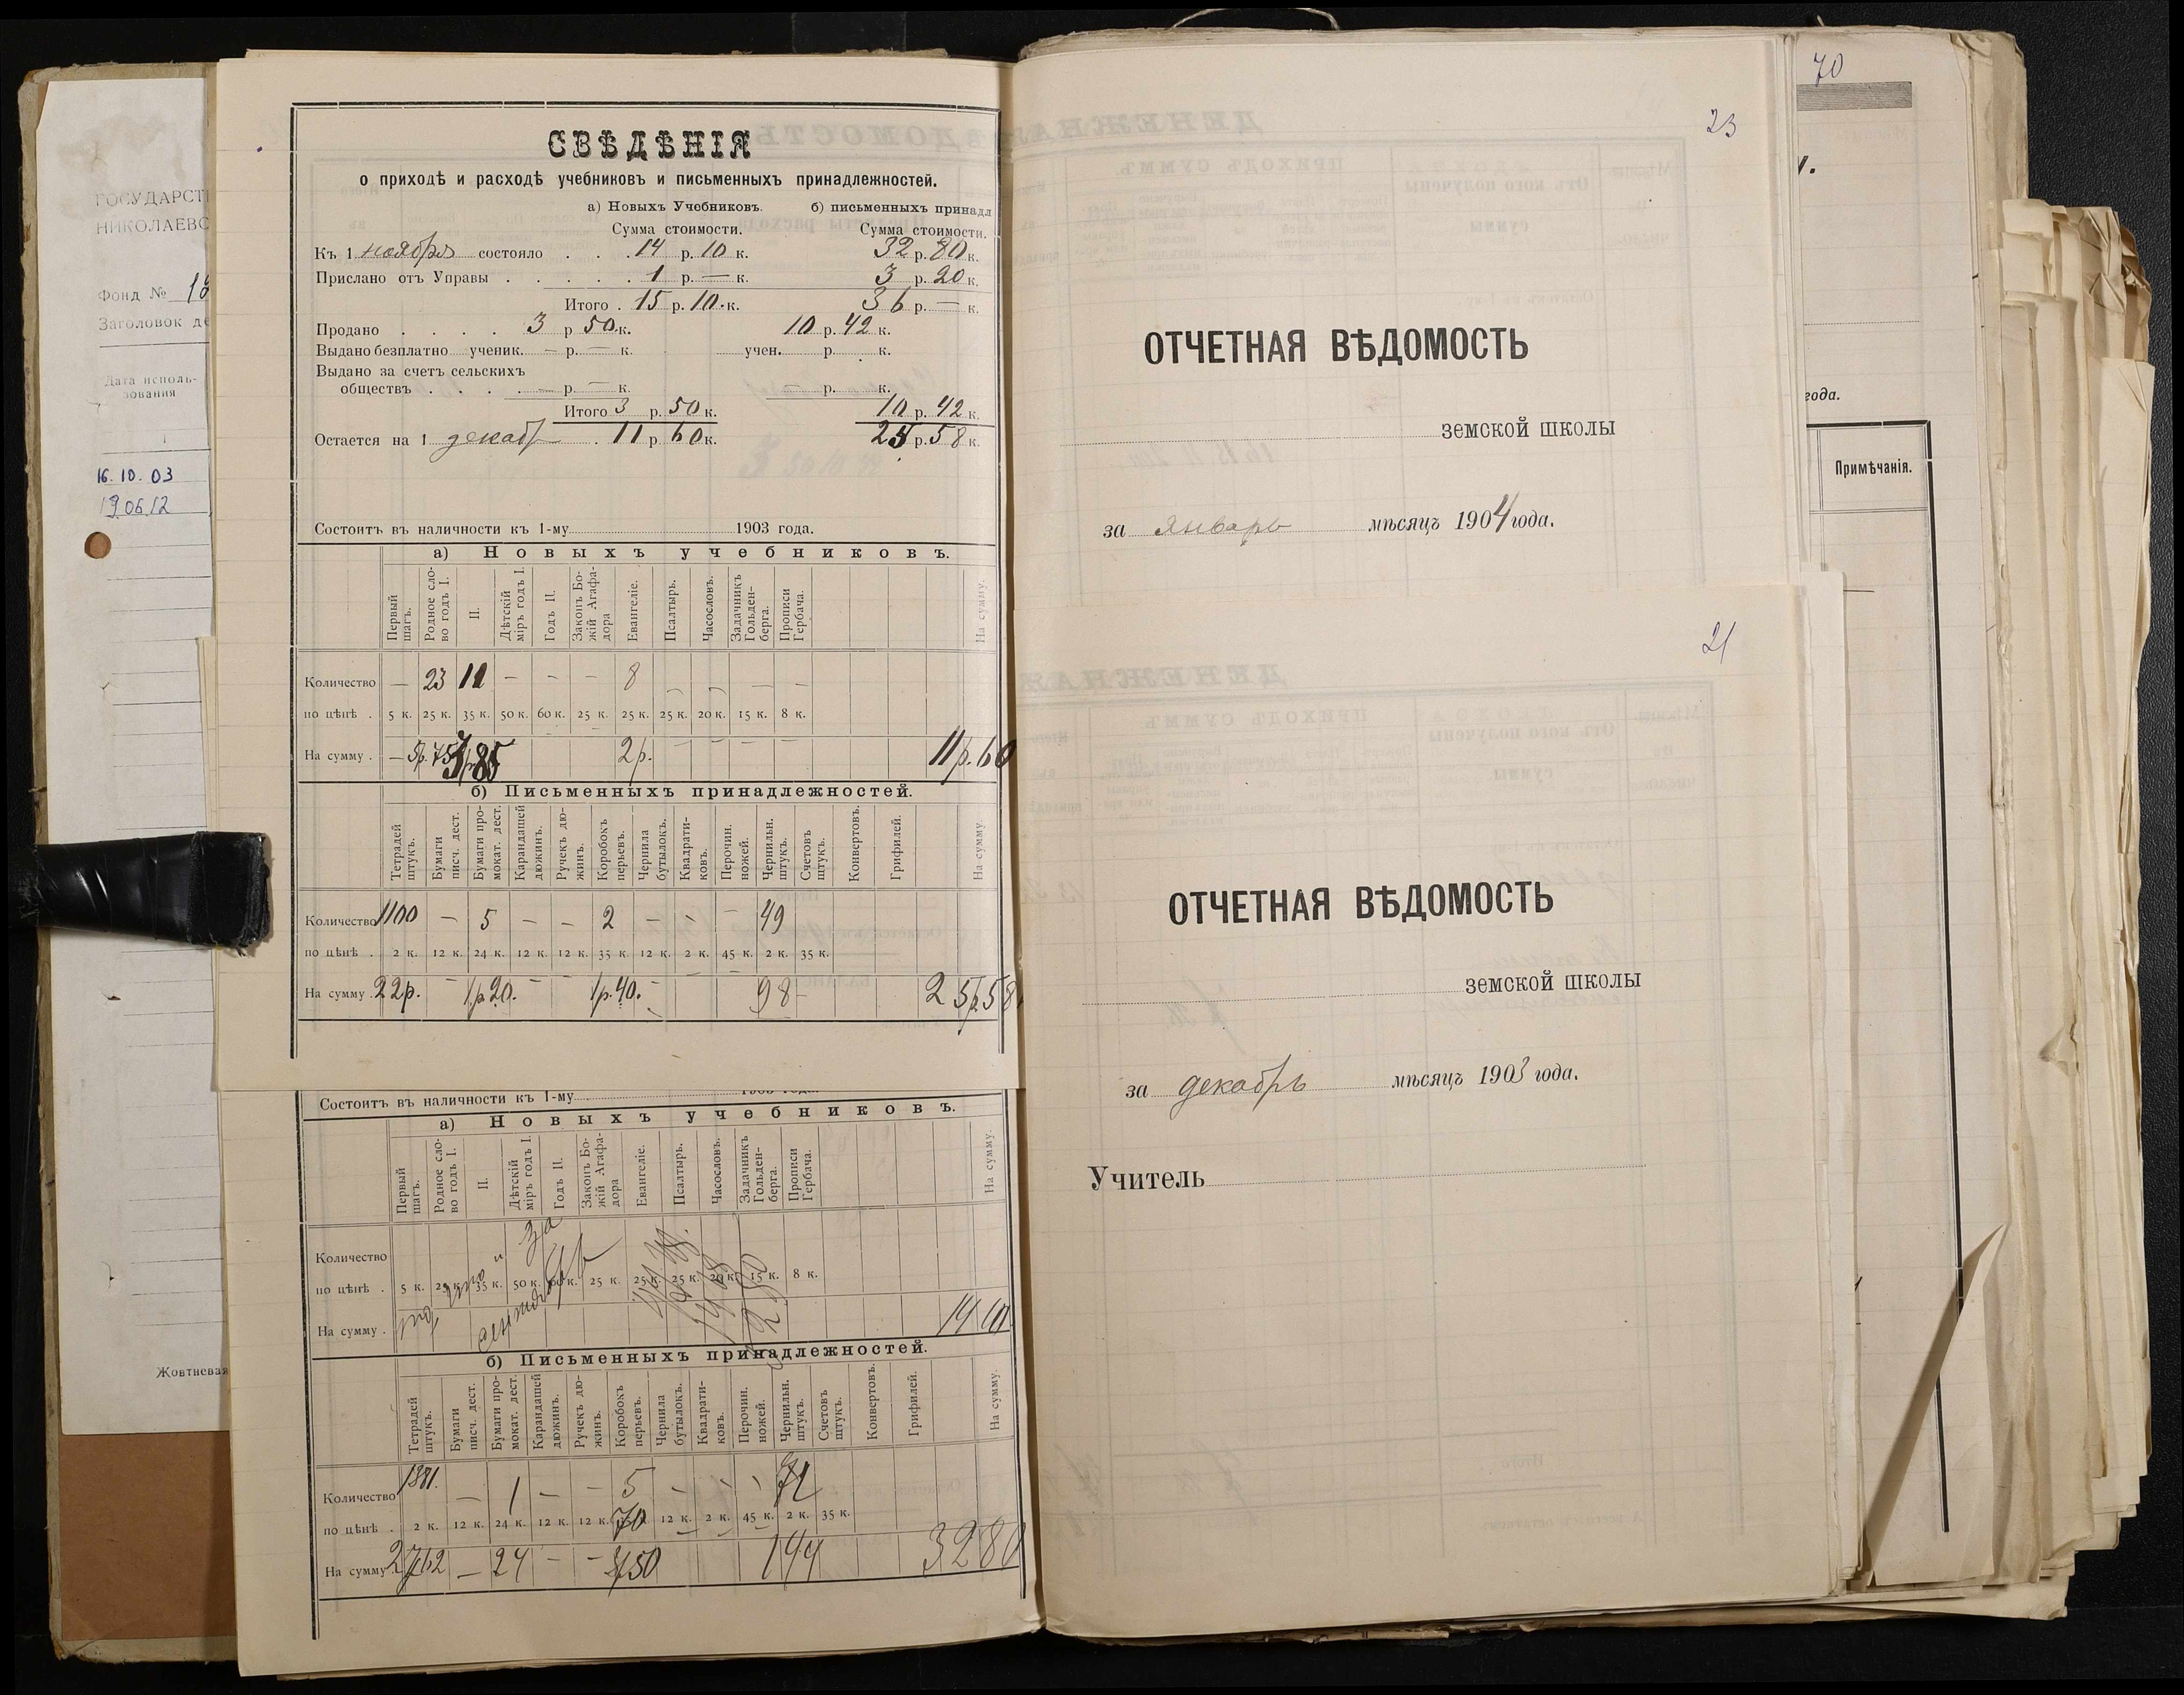 ГОСУДАРСТ
НИКОЛАЕВС
Фонд №
Заголовок де
Дата исполь-
зования
1
16.10.03
19.06.12
Жовтневая
СВѢДѢНІЯ
о приходѣ и расходѣ учебниковъ и письменныхъ принадлежностей.
а) Новыхъ Учебниковъ. б) письменныхъ принадл
Сумма стоимости. Сумма стоимости.
Къ 1 ноября состояло . . . 14 р. 10 к. 32 р. 80 к.
Прислано отъ Управы . . . . . 1 р. — к. 3 р. 20 к.
Итого . 15 р. 10 . к. 36 р. — к.
Продано . . . . 3 р 50 к. 10 р. 42 к.
Выдано безплатно ученик. — р. — к. учен. р. к.
Выдано за счетъ сельскихъ
обществъ . . . . — р. — к. — р. к.
Итого 3 р. 50 к. 10 р. 42 к.
Остается на 1 декабр . 11 р. 60 к. 25 р. 58 к.
Состоитъ въ наличности къ 1-му 1903 года.
а) Новыхъ учебниковъ.
Первый шагъ. Родное сло-во годъ I. II. Дѣтскій міръ годъ I. Годъ II. Законъ Бо-жій Агафа-дора Евангеліе. Псалтырь. Часословъ. Задачникъ Гольден-берга. Прописи Гербача. На сумму.
Количество — 23 11 — — — 8 — — — —
по цѣнѣ . 5 к. 25 к. 35 к. 50 к. 60 к. 25 к. 25 к. 25 к. 20 к. 15 к. 8 к.
На сумму . — 5р.75 3р85 2р. — — — — 11р.60
б) Письменныхъ принадлежностей.
Тетрадей штукъ. Бумаги писч. дест. Бумаги про-мокат. дест. Карандашей дюжинъ. Ручекъ дю-жинъ. Коробокъ перьевъ. Чернила бутылокъ. Квадрати-ковъ. Перочин. ножей. Чернильн. штукъ. Счетовъ штукъ. Конвертовъ. Грифилей. На сумму.
Количество 1100 — 5 — — 2 — — — 49
по цѣнѣ . 2 к. 12 к. 24 к. 12 к. 12 к. 35 к. 12 к. 2 к. 45 к. 2 к. 35 к.
На сумму . 22р. — 1р20. — 1р.40. — 98 — 25р58
Состоитъ въ наличности къ 1-му
а) Новыхъ учебниковъ.
Первый шагъ. Родное сло-во годъ I. II. Дѣтскій міръ годъ I. Годъ II. Законъ Бо-жій Агафа-дора Евангеліе. Псалтырь. Часословъ. Задачникъ Гольден-берга. Прописи Гербача. На сумму.
Количество
по цѣнѣ . 5 к. 25 к. 35 к. 50 к. 60 к. 25 к. 25 к. 25 к. 20 к. 15 к. 8 к.
то что и за сентябрь
На сумму . 14 10
б) Письменныхъ принадлежностей.
Тетрадей штукъ. Бумаги писч. дест. Бумаги про-мокат. дест. Карандашей дюжинъ. Ручекъ дю-жинъ. Коробокъ перьевъ. Чернила бутылокъ. Квадрати-ковъ. Перочин. ножей. Чернильн. штукъ. Счетовъ штукъ. Конвертовъ. Грифилей. На сумму.
Количество 1381. — 1 — — 5 — — — 72
по цѣнѣ . 2 к. 12 к. 24 к. 12 к. 12 к. 70 12 к. 2 к. 45 к. 2 к. 35 к.
На сумму . 2762 — 24 — — 350 144 3280
23
ОТЧЕТНАЯ ВѢДОМОСТЬ
земской школы
за январь мѣсяцъ 1904 года.
21
ОТЧЕТНАЯ ВѢДОМОСТЬ
земской школы
за декабрь мѣсяцъ 1903 года.
Учитель
70
года.
Примѣчанія.